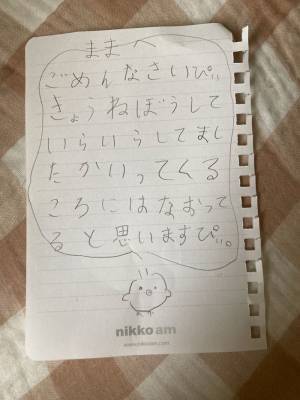 ままへ
ごめんなさいぴぃ
きょうねぼうして
いらいらしてまし
たかいってくる
ころにはなおって
ると思いますぴぃ。
nikko am
www.nikkoam.com